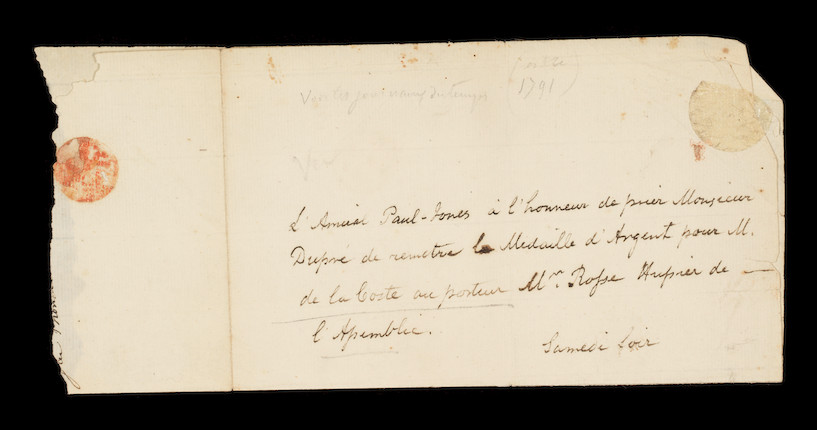 Voir les journaux du temps
1791
L'Amiral Paul-Jones à l'honneur de prier Monsieur
Dupré de remetre la Medaille d'Argent pour M.
de la Coste au porteur Mr. Rosse Huissier de
l'Assemblée.
Samedi Soir